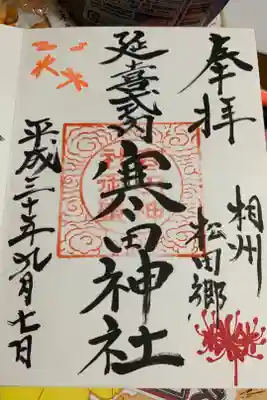 奉拝
相州
松田郷
延喜式内
寒田神社
平成三十年九月七日